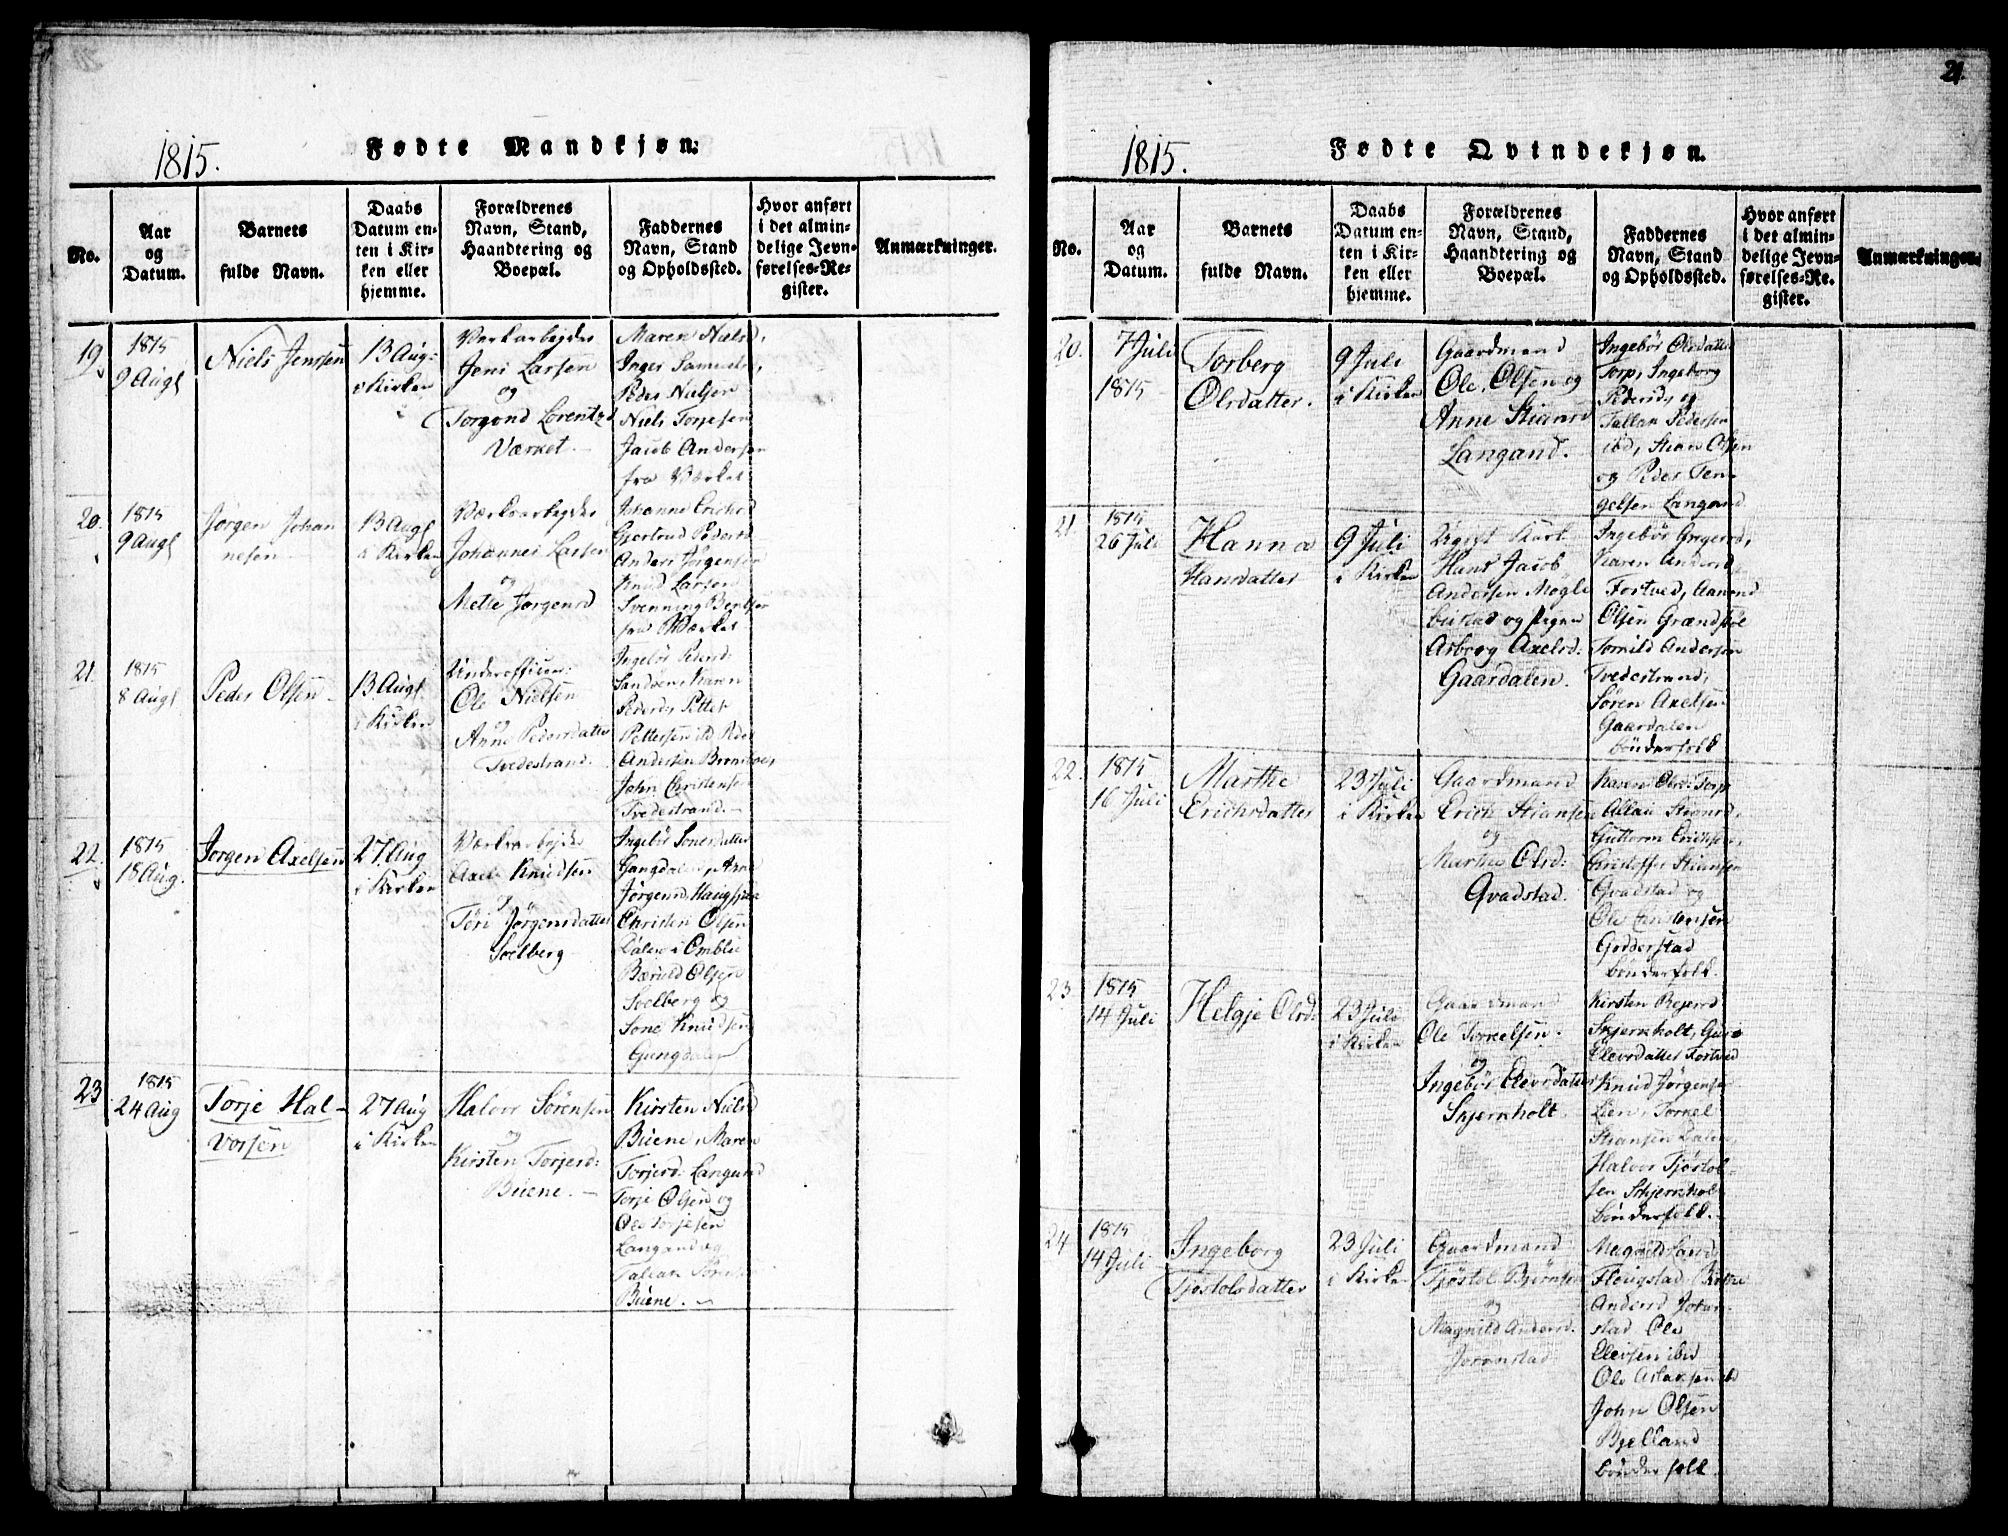 21.
1815. Fødte Mandkjøn.
No.
Aar og Datum.
Barnets fulde Navn.
Daabs Datum enten i Kirken eller hjemme.
Forældrenes Navn, Stand, Haandtering og Boepæl.
Faddernes Navn, Stand og Opholdssted.
Hvor anført i det almindelige Jevnførelses-Register.
Anmærkninger.
19
1815
9 Augs
Niels Jenssen
13 Aug:
i Kirken
Verkarbejder
Jens Larsen
og
Torgond Lorentzd
Værket.
Maren Nielsd,
Inger Samuelsd,
Peder Nielsen
Niels Torjesen
Jacob Andersen
fra Værket
20.
1815
9 Augs
Jørgen Johan
nesen
13 Augs
i Kirken
Værkarbejder
Johannes Larsen
og
Mette Jørgensd
Johanne Erichsd
Gjertrud Pedersd
Anders Jørgensen
Knud Larsen
Svenning Bentsen
fra Værket
21.
1815
8 Augs
Peder Olsen
13 Augs
i Kirken
Underofficeer
Ole Nielsen
og
Anne Pedersdatter
Tvedestrand.
Ingebør Pedersd:
Sandøen, Karen
Pedersd, Petter
Pettersen ibd Peder
Andersen
John Christensen
Tvedestrand.
22.
1815
18 Aug.
Jørgen Axelsen
27 Aug
i Kirken
Værkarbejder
Axel Knudsen
og
Tøri Jørgensdatter
Solberg
Ingebør Sonesdatter
Gangdalen, Anne
Jørgensd,
Christen Olsen
Dalen i Omblie
Olsen
Solberg og
Sone Knudsen
Gangdalen
23
1815
24 Aug
Torje Hal-
vorsen
27 Aug
i Kirken
Halvor Sørensen
og
Kirsten Torjersd:
Buene.
Kirsten Nielsd
Buene, Maren
Torjersd: Langand
Torje Olsen og
Ole Torjesen
Langand og
Sørensen
Buene.
1815. Fødte Qvindekjøn.
No.
Aar og Datum.
Barnets fulde Navn.
Daabs Datum enten i Kirken eller hjemme.
Forældrenes Navn, Stand, Haandtering og Boepæl.
Faddernes Navn, Stand og Opholdssted.
Hvor anført i det almindelige Jevnførelses-Register.
Anmærkninger.
20.
7 Juli
1815
Torberg
Olsdatter.
9 Juli
i Kirken
Gaardmand
Ole Olsen og
Anne Stiansd
Langand.
Ingebør Olsdatter
Torp, Ingeborg
Pedersd, og
Tallak Pedersen
ibd, Stian Olsen
og Peder Ten-
gelsen Langand
21.
1815
26 Juli
Hanna
Hansdatter
9 Juli
i Kirken
Ugift Karl
Hans Jacob
Andersen Møgle
og Pigen
Asborg Axelsd:
Gaardalen.
Ingebør
Karen Andersd
Fostved, Aanond
Olsen Grændstøl
Tomild Andersen
Tvedestrand,
Søren Axelsen
Gaardalen
bønderfolk
22.
1815
16 Juli
Marthe
Erichsdatter
23 Juli
i Kirken
Gaardmand
Erich Stiansen
og
Marthe Olsd:
Qvadstad.
Karen Olsd: Torp
Stiansd,
Guttorm Erichsen,
Christoffer Stiansen
Qvadstad og
Ole
Godderstad
bønderfolk.
23
1815
14 Juli
Helgje Olsd:
23 Juli
i Kirken
Gaardmand
Ole Torkelsen
og
Ingebør Elevsdatter
Skjernholt.
Kirsten
Skjernholt, Guri
Elevsdatter Fostved
Knud Jørgensen
Lien, Torkel
Stiansen Dalen,
Halvor Tjøstol-
sen Skjernholt
bønderfolk.
24
1815
14 Juli
Ingeborg
Tjøstolsdatter
23 Juli
i Kirken
Gaardmand
Tjøstol Bjørnsen
og
Magnild Andersd.
Jorenstad
Magnild
Flougstad, Birthe
Andersd Joren-
stad Ole
Elevsen ibd
Ole Aslaksen ibd
John Olsen
Bjelland
bønderfolk.